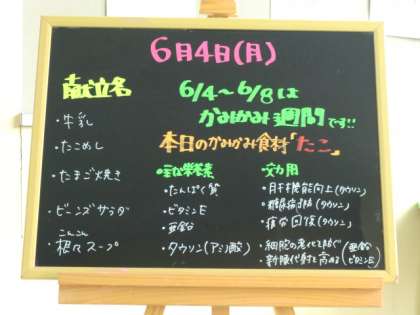 6月4日(月)
献立名
・牛乳
・たこめし
・たまご焼き
・ビーンズサラダ
こんこん
・根々スープ
6/4〜6/8は
かみかみ週間です!!
本日のかみかみ食材「たこ」
・主な栄養素
・たんぱく質
・ビタミンE
・亜鉛
・タウリン(アミノ酸)
・効用
・肝機能向上(タウリン)
・糖尿病予防(タウリン)
・疲労回復(タウリン)
・細胞の老化を防ぐ(亜鉛
・新陳代謝を高める ビタミンE)